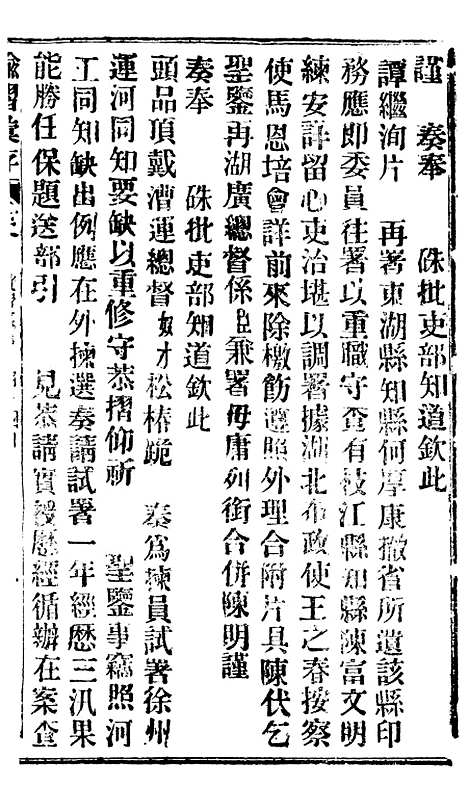 謹　奏奉　硃批吏部知道欽此
譚繼洵片　再署東湖縣知縣何厚康撤省所遺該縣印
務應即委員往署以重職守查有枝江縣知縣陳富文明
練安詳留心吏治堪以調署據湖北布政使王之春按察
使馬恩培會詳前來除檄飭遵照外理合附片具陳伏乞
聖鑒再湖廣總督係臣兼署毋庸列銜合併陳明謹
奏奉　硃批吏部知道欽此
頭品頂戴漕運總督奴才松椿跪　奏為揀員試署徐州
運河同知要缺以重修守恭摺仰祈　聖鑒事竊照河
工同知缺出例應在外揀選奏請試署一年經歷三汛果
能勝任保題送部引　見恭請實授歷經循辦在案查
諭摺彙存